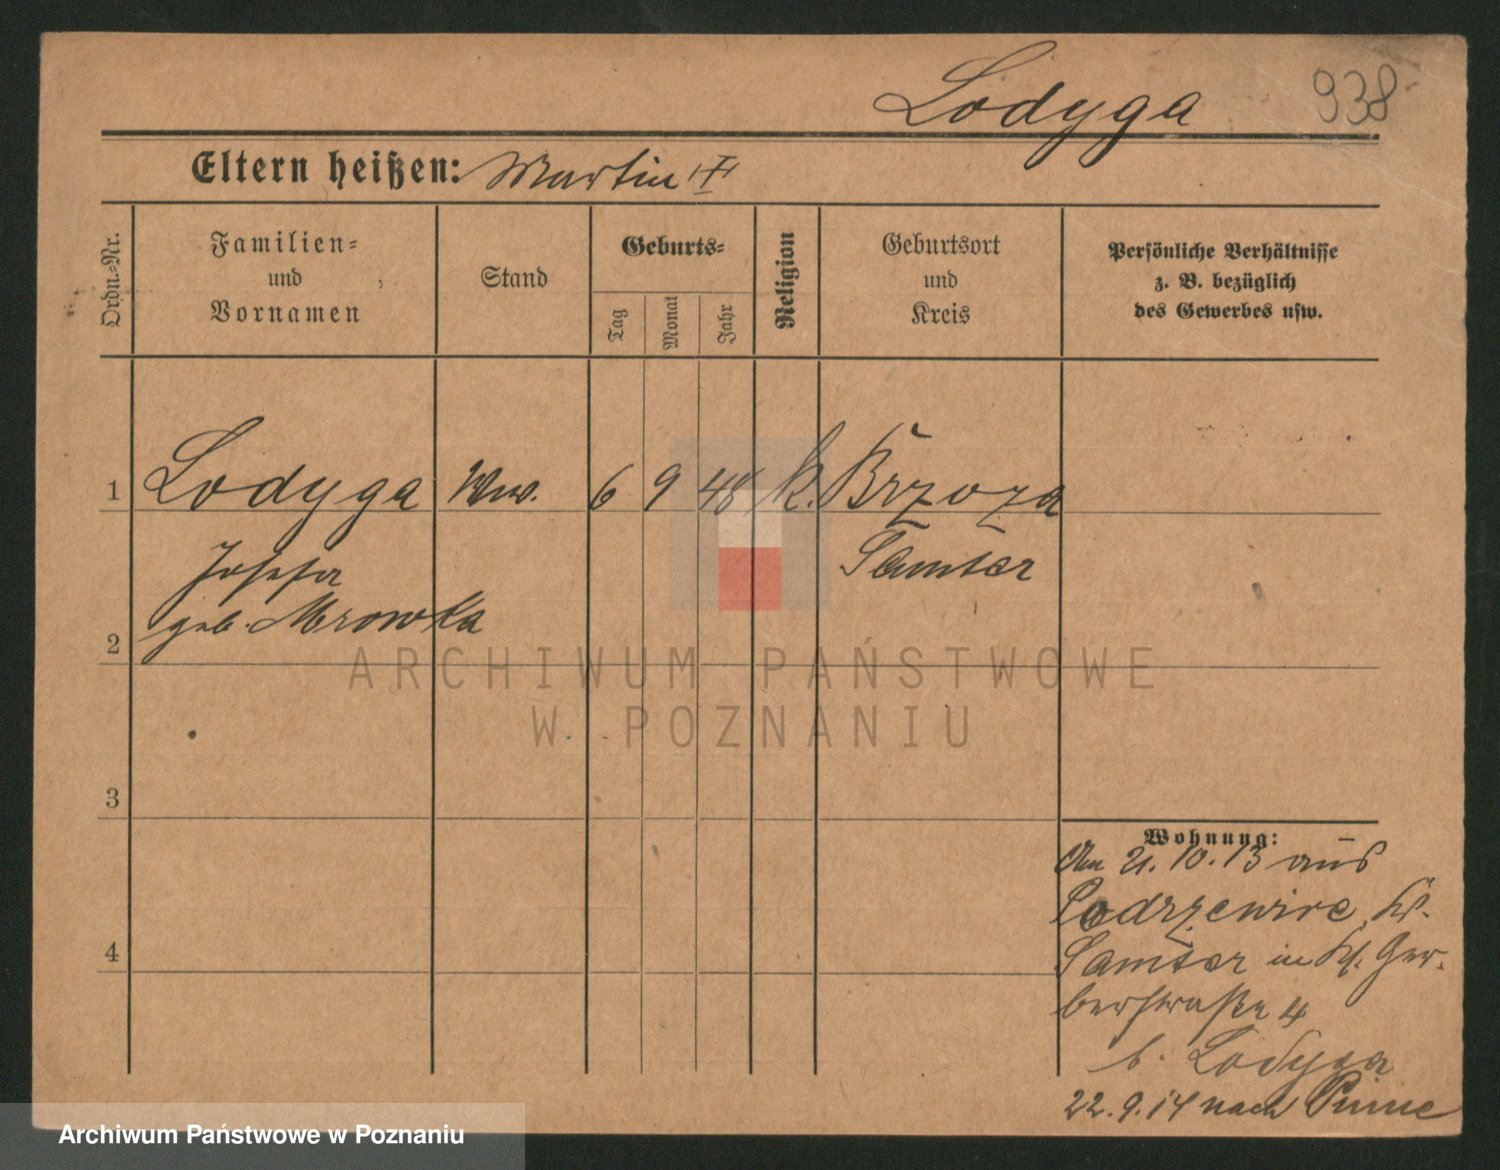 Lodyga
938
Eltern heißen: Martin I
Ordn.-Nr.
Familien-
und
Vornamen
Stand
Geburts-
Tag
Monat
Jahr
Religion
Geburtsort
und
Kreis
Persönliche Verhältnisse
z. B. bezüglich
des Gewerbes usw.
1 Lodyga Ww. 6 9 48 k. Brzoza
Josefa Samter
geb. Mrowka
2
ARCHIWUM PAŃSTWOWE
W POZNANIU
3
Wohnung:
21.10.13 aus
Podrzewire, Kr.
4
Samter in Kl. Ger-
berstraße 4
b. Lodyga
22.9.14 nach Pinne
Archiwum Państwowe w Poznaniu